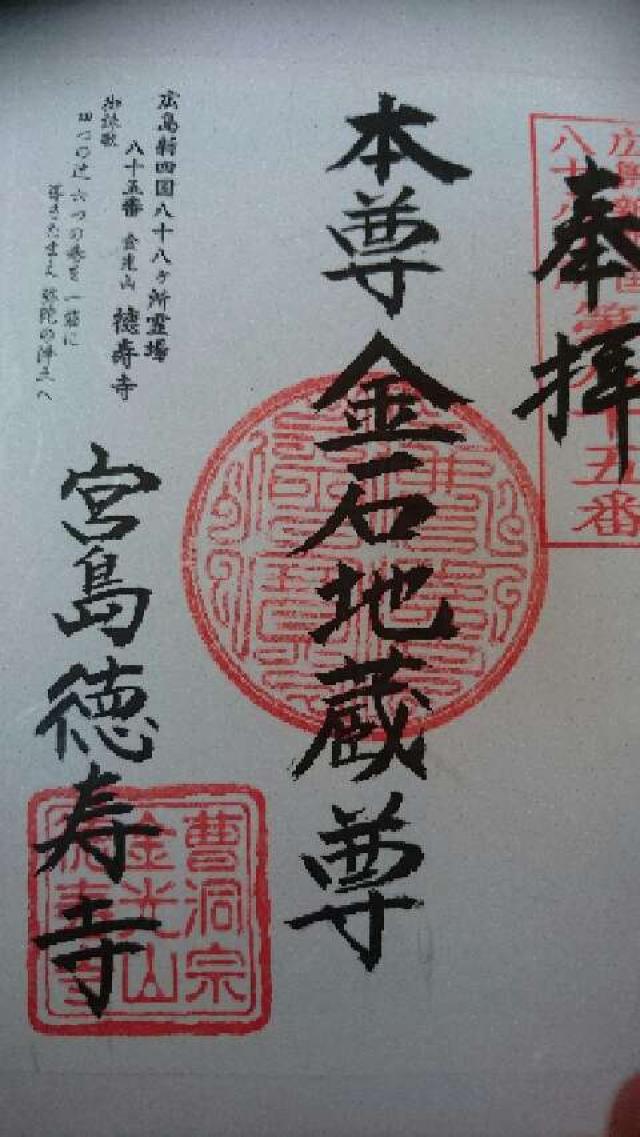 奉拝
八十八
第八十五番
本尊 金石地蔵尊
広島新四国八十八ヶ所霊場
八十五番 金光山 徳寿寺
御詠歌
四つの辻 六つの巷を 一筋に
導きたまえ 弥陀の浄土へ
宮島徳寿寺
曹洞宗
金光山
徳寿寺